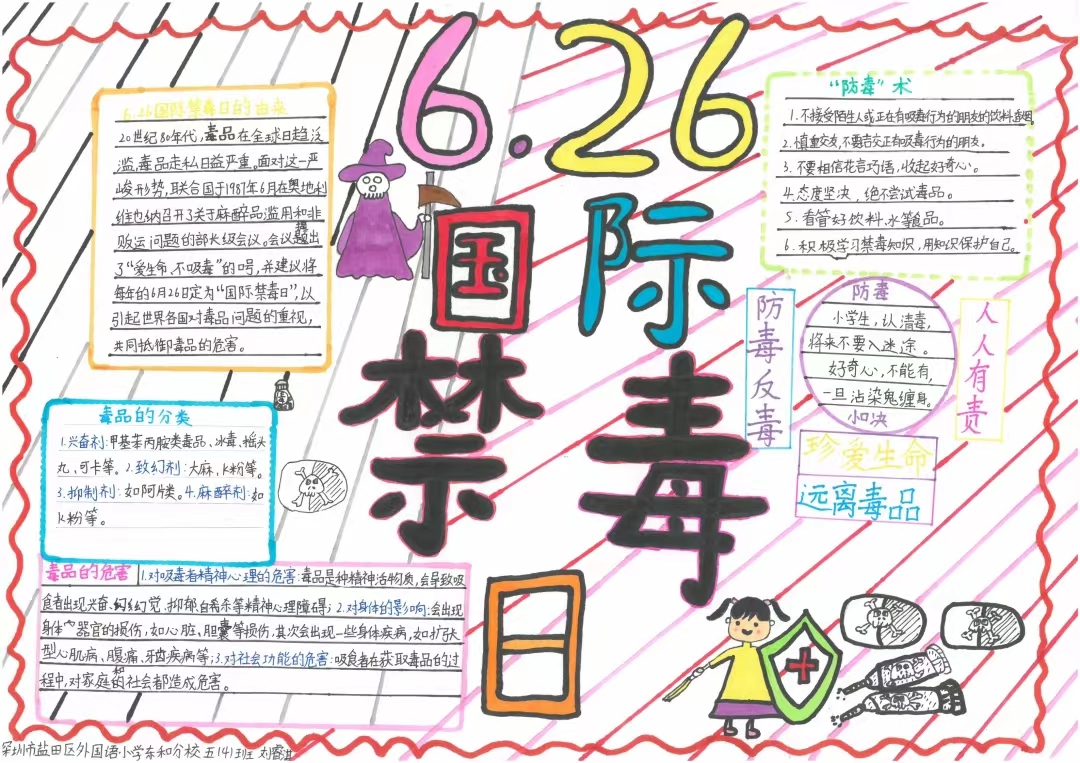 6.26
国际
禁毒
日
6.26国际禁毒日的由来
20世纪80年代,毒品在全球日趋泛
滥,毒品走私日益严重。面对这一严
峻形势,联合国于1987年6月在奥地利
维也纳召开了关于麻醉品滥用和非
贩运问题的部长级会议。会议提出
了“爱生命,不吸毒”的口号,并建议将
每年的6月26日定为“国际禁毒日”,以
引起世界各国对毒品问题的重视,
共同抵御毒品的危害。
毒品的分类
1.兴奋剂:甲基苯丙胺类毒品、冰毒、摇头
丸、可卡等。2.致幻剂:大麻,K粉等。
3.抑制剂:如阿片类。4.麻醉剂:如
K粉等。
毒品的危害
1.对吸毒者精神心理的危害:毒品是种精神活物质,会导致吸
食者出现兴奋、幻觉、抑郁自杀等精神心理障碍;2.对身体的影响:会出现
身体器官的损伤,如心脏、胆囊等损伤,其次会出现一些身体疾病,如扩张
型心肌病、腹痛、牙齿疾病等;3.对社会功能的危害:吸食者在获取毒品的过
程中,对家庭和社会都造成危害。
“防毒”术
1.不接受陌生人或正在有吸毒行为的朋友的饮料、香烟
2.慎重交友,不要结交正有吸毒行为的朋友。
3.不要相信花言巧语,收起好奇心。
4.态度坚决,绝不尝试毒品。
5.看管好饮料、水等食品。
6.积极学习禁毒知识,用知识保护自己。
防毒反毒
防毒
小学生,认清毒,
将来不要入迷途。
好奇心,不能有,
一旦沾染鬼缠身。
口诀
人人有责
珍爱生命
远离毒品
深圳市盐田区外国语小学东和分校 五(4)班 刘睿淇